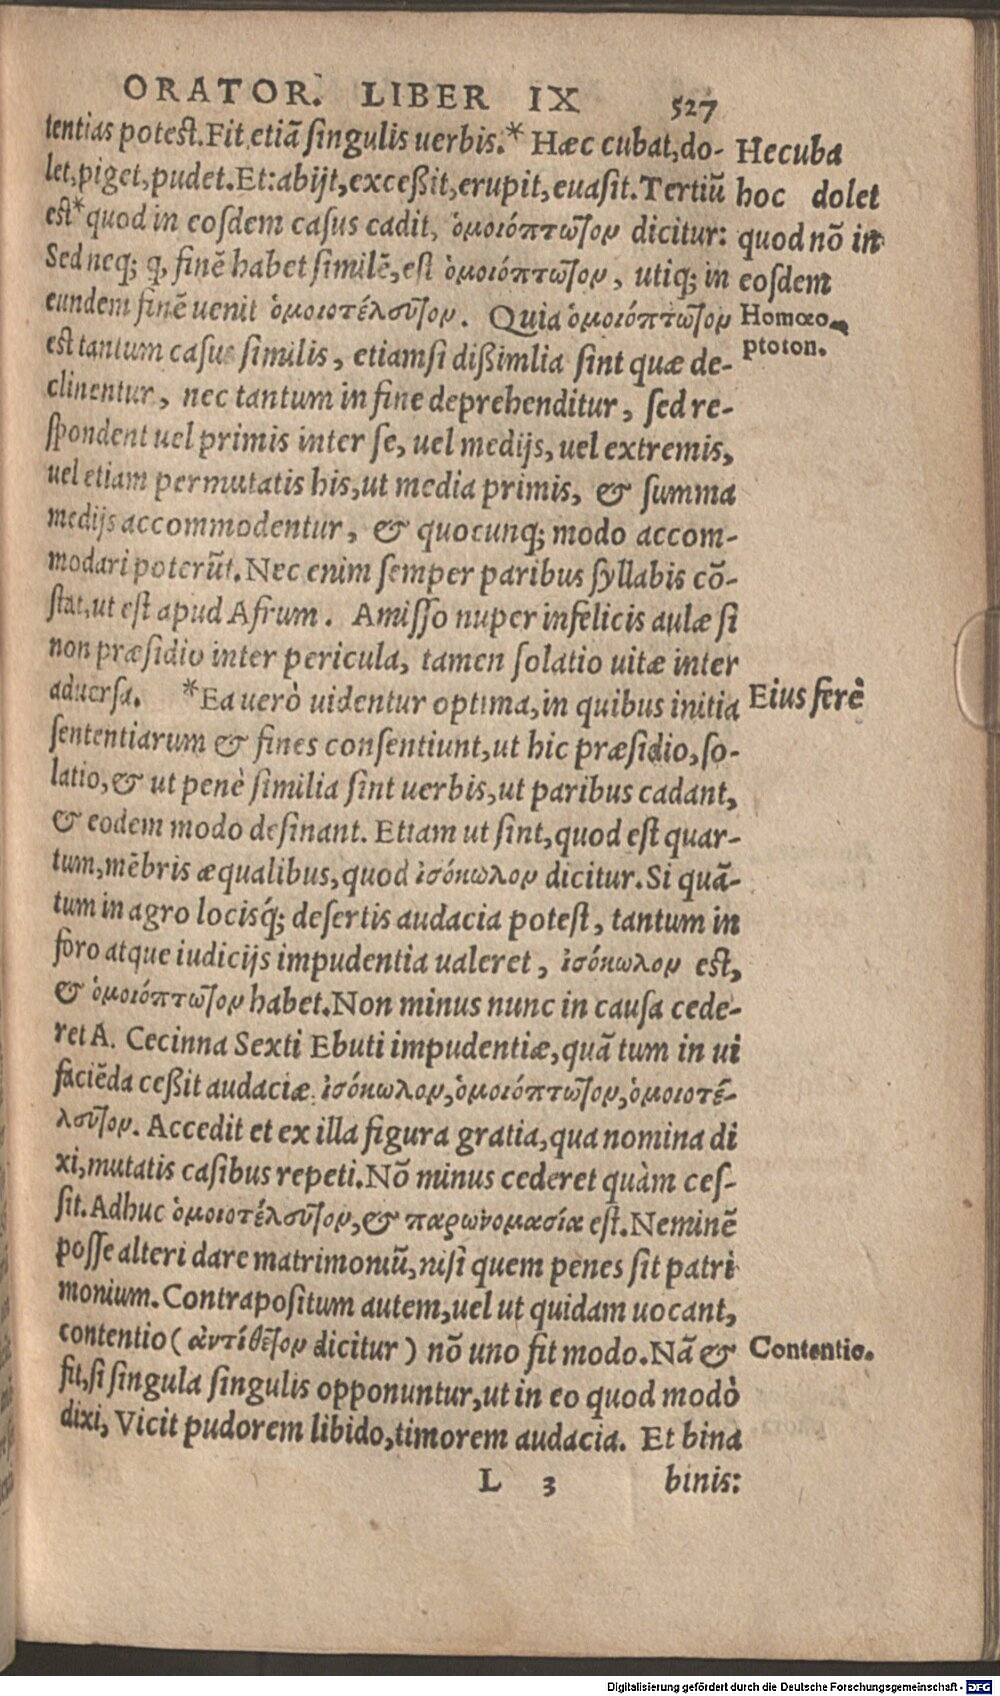 ORATOR. LIBER IX 527
tentias potest. Fit etiã singulis uerbis.* Hæc cubat, do-
let, piget, pudet. Et: abijt, exceßit, erupit, euasit. Tertiũ
est* quod in eosdem casus cadit, ὁμοιόπτωτον dicitur:
Sed neq; q, finẽ habet similẽ, est ὁμοιόπτωτον, utiq; in
eundem finẽ uenit ὁμοιοτέλευτον. Quia ὁμοιόπτωτον
est tantum casus similis, etiamsi dißimlia sint quæ de-
clinentur, nec tantum in fine deprehenditur, sed re-
spondent uel primis inter se, uel medijs, uel extremis,
uel etiam permutatis his, ut media primis, & summa
medijs accommodentur, & quocunq; modo accom-
modari poterũt. Nec enim semper paribus syllabis cõ-
stat, ut est apud Afrum. Amisso nuper infelicis aulæ si
non præsidio inter pericula, tamen solatio uitæ inter
aduersa. *Ea uerò uidentur optima, in quibus initia
sententiarum & fines consentiunt, ut hic præsidio, so-
latio, & ut penè similia sint uerbis, ut paribus cadant,
& eodem modo desinant. Etiam ut sint, quod est quar-
tum, mẽbris æqualibus, quod ἰσόκωλον dicitur. Si quã-
tum in agro locisq́; desertis audacia potest, tantum in
foro atque iudicijs impudentia ualeret, ἰσόκωλον est,
& ὁμοιόπτωτον habet. Non minus nunc in causa cede-
ret A. Cecinna Sexti Ebuti impudentiæ, quã tum in ui
faciẽda ceßit audaciæ. ἰσόκωλον, ὁμοιόπτωτον, ὁμοιοτέ-
λευτον. Accedit et ex illa figura gratia, qua nomina di
xi, mutatis casibus repeti. Nõ minus cederet quàm ces-
sit. Adhuc ὁμοιοτέλευτον, & παρωνομασία est. Neminẽ
posse alteri dare matrimoniũ, nisi quem penes sit patri
monium. Contrapositum autem, uel ut quidam uocant,
contentio (ἀντίθετον dicitur) nõ uno fit modo. Nã &
fit, si singula singulis opponuntur, ut in eo quod modò
dixi, Vicit pudorem libido, timorem audacia. Et bina
L 3 binis:
Hecuba
hoc dolet
quod nõ in
eosdem
Homœo-
ptoton.
Eius ferè
Contentio.
Digitalisierung gefördert durch die Deutsche Forschungsgemeinschaft - DFG